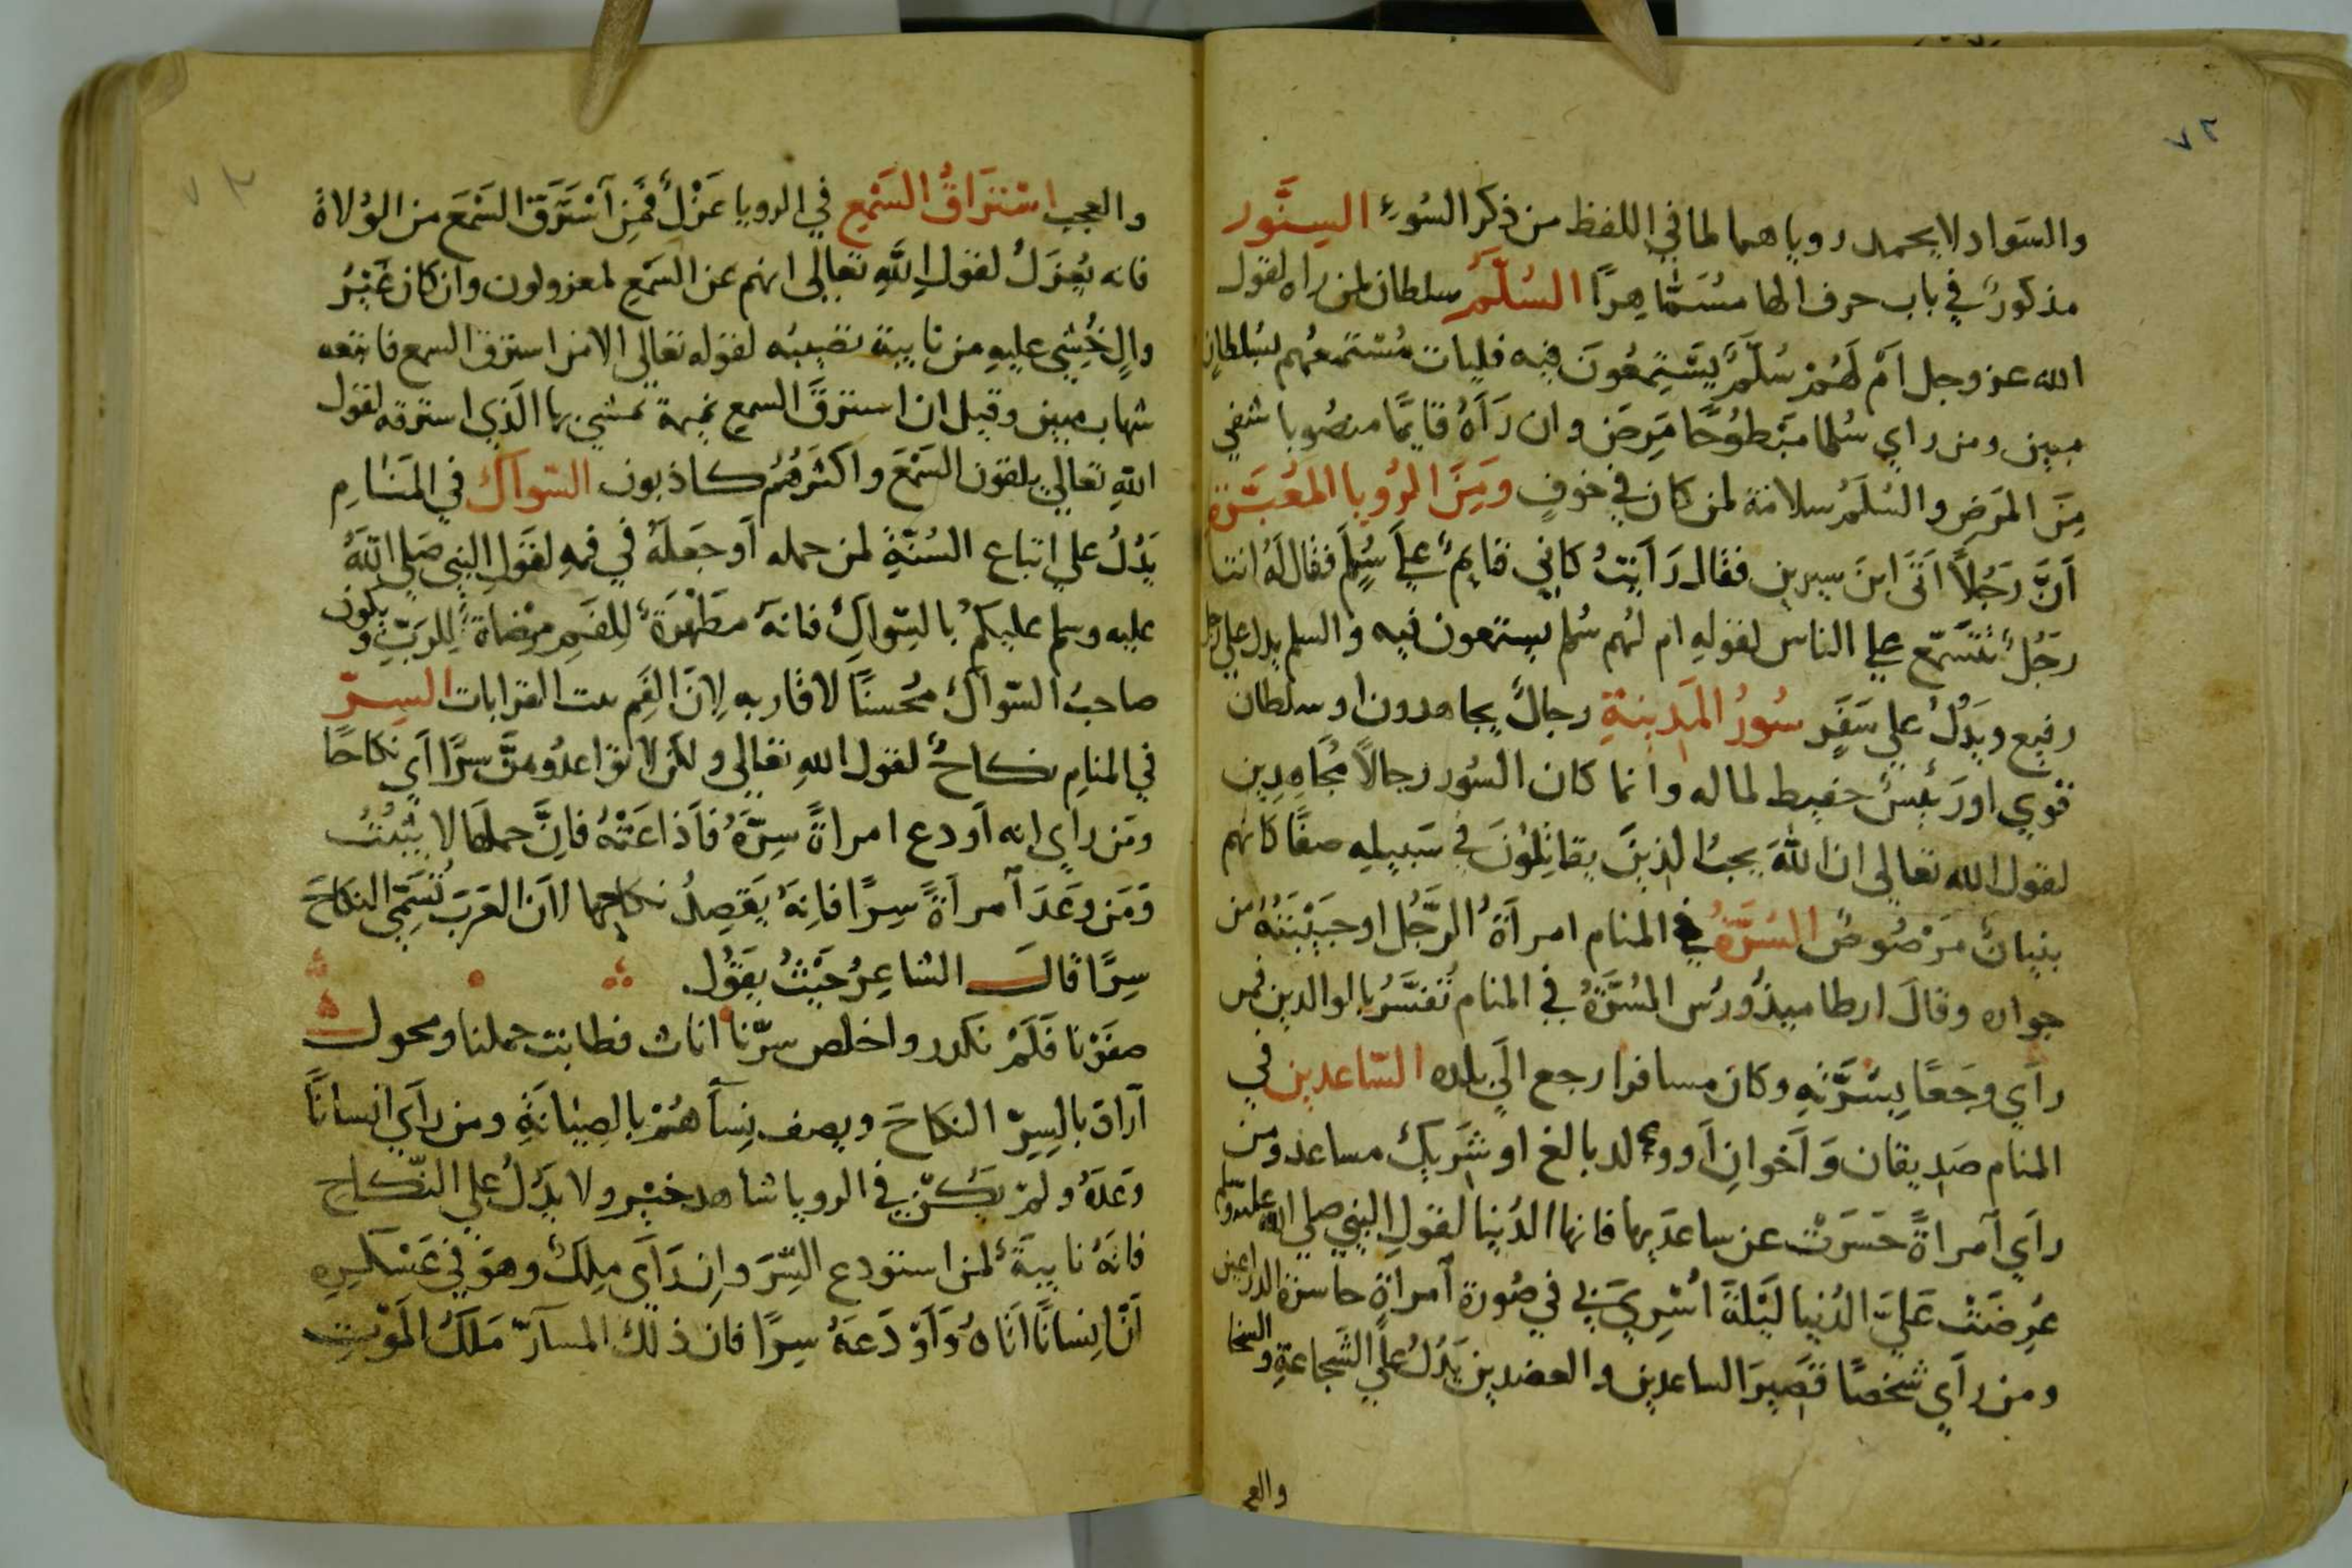 ٧٢
والسَواد لا يحمد روياهما لما في اللفظ من ذكر السُوءِ السِنَّور
مذكورٌ في باب حرف الها مسُمَّا هِرًّا السُلَّمُ سلطان لمن راه لقول
الله عز وجل اَمْ لَهُمْ سُلَّمٌ يَسْتَمِعُونَ فِيه فليات مُسْتمعُهم بسُلطانٍ
مبين ومن راي سُلما مَبْطوُحًا مَرِضَ وان رَآهُ قايمًا منصُوبا شفي
مِنَ المرَضِ والسُلَّمُ سلامة لمن كان في خوفٍ ومِنَ الرُويا المعُبَّرة
اَنَّ رَجُلاً اتَى ابنَ سيرين فقال رَاَيتُ كاني قايمٌ علَي سُلَّمٍ فقال لهُ انت
رَجُلٌ تتسَمّع علي الناس لقولهِ ام لهُم سُلم يستمعون فيه والسلم يدل علي رجل
رفيع ويدُلُ علي سَفَرٍ سُورُ المَدِينةِ رجالٌ يجاهدون او سلطان
قوي او رَئيسٌ حفيظ لماله وانما كان السُور رجالاً مُجَاهِدِين
لقول الله تعالى ان اللهَ يحبُ الذِينَ يقاتِلُونَ في سَبيلِهِ صفًا كانهم
بنيانٌ مَرْصُوصٌ السُرَّةُ في المنام امراَةُ الرَّجُلِ اوحبَيْبَتهُ من
جواره وقالَ ارطاميدُورُس السُرَّةُ في المنام تُفسَّرُ بالوالدين فمن
راَي وجَعًا بِسُرَّتِهِ وكان مسافرا رجع اليَ بلده السّاعدين في
المنام صَدِيقان وَاَخوانِ اَو ولد بالغ او شريكٌ مساعد ومن
راَي اَمراةً حَسَرتْ عن ساعدَيها فانها الدُنيا لقولِ النبي صلي الله عليه وسلم
عُرِضَتْ عَليَّ الدُنيا لَيْلةَ اُسْرِيَ بي في صُورة اَمراةٍ حاسرة الدراعين
ومن راَي شخصًا قصِيرَ الساعدين والعضدين يَدُلُ علَي الشَجاعةِ والسخا
والعجـ
٧٣
والعجب اسْترَاقُ السَمْعِ في الرويا عَزْلٌ فمَنِ اَسْتَرَقَ السَمْعَ من الوُلاةِ
فانه يُعزَلُ لقول اِللَّهِ تعَالى انهم عن السَمْعِ لمعزولون وان كان غَيْرُ
والٍ خُشِي عليهِ من نايبة تصيبُه لقوله تعالي الا من استرق السمع فاتبعه
شهاب مبين وقيل ان استرقَ السمع نميمة يمشي بها الَذي استرقه لقول
اللهِ تعَالي يلقون السَمْعَ واكثرهُمُ كاذبون السّواك في المنَامِ
يَدُلُ علي اتباع السُنّةِ لمن حمله اَو جَعَلهُ في فمهِ لقَولِ النبي صَلي اللّهُ
عليه وسلم عليكُم بالسِّواكِ فانهُ مطهَرَةٌ لِلفَمِ مرْضاةٌ لِلرَبِّ ويكون
صاحبُ السّواك محُسنًا لاقاربهِ لاِنَ الفَم بيت القرابات السِرّ
في المنامِ نكاحٌ لقول اللهِ تعالي ولكن لا تواعدُوهنَّ سرًا اَي نكاحًا
ومَن راَي انه اَودع امراةً سِرَّهُ فاَذاعَتْهُ فاِنَّ حملها لا يثبُتُ
وَمَن وعَدَ اَمراَةً سِرًا فانِهُ يقصِدُ نكاحها لاَن العرَبَ تُسَمّي النكاحَ
سِرًا قالَ الشاعِرُ حَيْثُ يقوُل
صفَوْنا فَلَمْ نكدر واخلص سرّنا اناث فطابت حملنا ومحول
اَرادَ بالسِرّ النكاحَ ويصف نِسآَهُمْ بالصِيَانَةِ ومن راَي انسانًا
وعَدَهُ ولمْ يكُنّ في الرويا شاهد خيْر ولا يدُلُ علي النّكاح
فانهُ نايبةٌ لمن استودع السِّرَ واِن رَاَي مِلكٌ وهوَ في عَسْكرِهِ
اَنّ اِنسانًا اَتاهُ وَاَوْدَعهُ سِرًا فان ذلك المسآرّ مَلَكُ الموْتِ